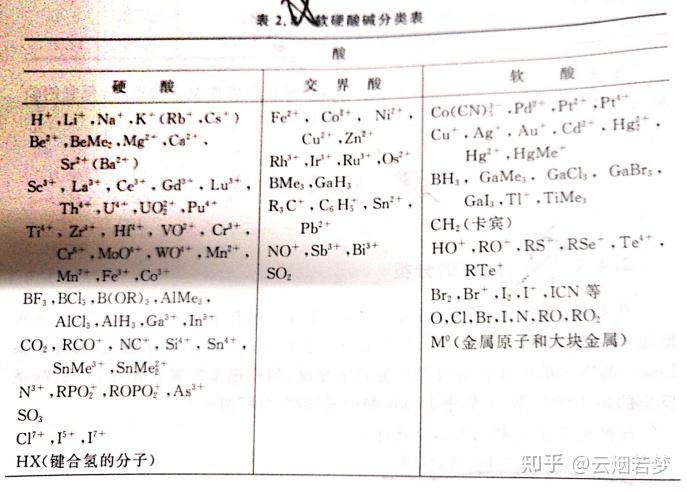 表 2. 软硬酸碱分类表
酸
硬 酸
交 界 酸
软 酸
H⁺,Li⁺,Na⁺,K⁺(Rb⁺,Cs⁺)
Be²⁺,BeMe₂,Mg²⁺,Ca²⁺,
Sr²⁺(Ba²⁺)
Sc³⁺,La³⁺,Ce³⁺,Gd³⁺,Lu³⁺,
Th⁴⁺,U⁴⁺,UO₂²⁺,Pu⁴⁺
Ti⁴⁺,Zr⁴⁺,Hf⁴⁺,VO²⁺,Cr³⁺,
Cr⁶⁺,MoO⁴⁺,WO⁴⁺,Mn²⁺,
Mn⁷⁺,Fe³⁺,Co³⁺
BF₃,BCl₃,B(OR)₃,AlMe₃,
AlCl₃,AlH₃,Ga³⁺,In³⁺
CO₂,RCO⁺,NC⁺,Si⁴⁺,Sn⁴⁺,
SnMe³⁺,SnMe₂²⁺
N³⁺,RPO₂⁺,ROPO₂⁺,As³⁺
SO₃
Cl⁷⁺,I⁵⁺,I⁷⁺
HX(键合氢的分子)
Fe²⁺,Co²⁺,Ni²⁺,
Cu²⁺,Zn²⁺
Rh³⁺,Ir³⁺,Ru³⁺,Os²⁺
BMe₃,GaH₃
R₃C⁺,C₆H₅⁺,Sn²⁺,
Pb²⁺
NO⁺,Sb³⁺,Bi³⁺
SO₂
Co(CN)₅³⁻,Pd²⁺,Pt²⁺,Pt⁴⁺
Cu⁺,Ag⁺,Au⁺,Cd²⁺,Hg₂²⁺,
Hg²⁺,HgMe⁺
BH₃,GaMe₃,GaCl₃,GaBr₃,
GaI₃,Tl⁺,TlMe₃
CH₂(卡宾)
HO⁺,RO⁺,RS⁺,RSe⁺,Te⁴⁺,
RTe⁺
Br₂,Br⁺,I₂,I⁺,ICN 等
O,Cl,Br,I,N,RO,RO₂
M⁰(金属原子和大块金属)
知乎 @云烟若梦